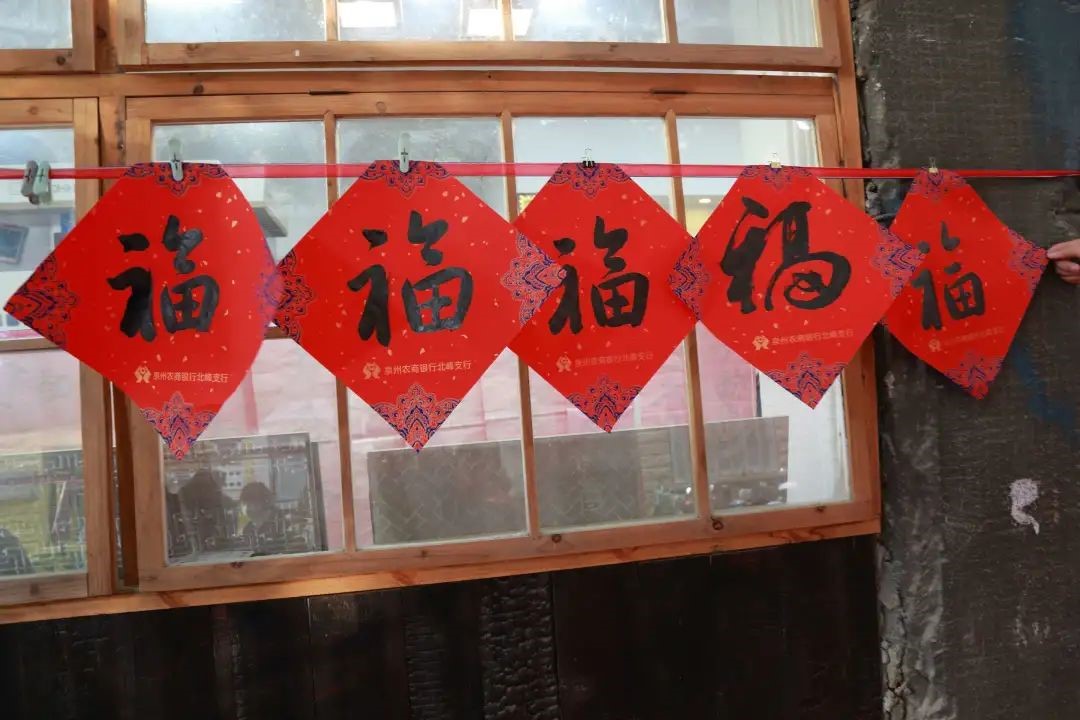 福
泉州农商银行北峰支行
福
泉州农商银行北峰支行
福
泉州农商银行北峰支行
福
泉州农商银行北峰支行
福
泉州农商银行北峰支行